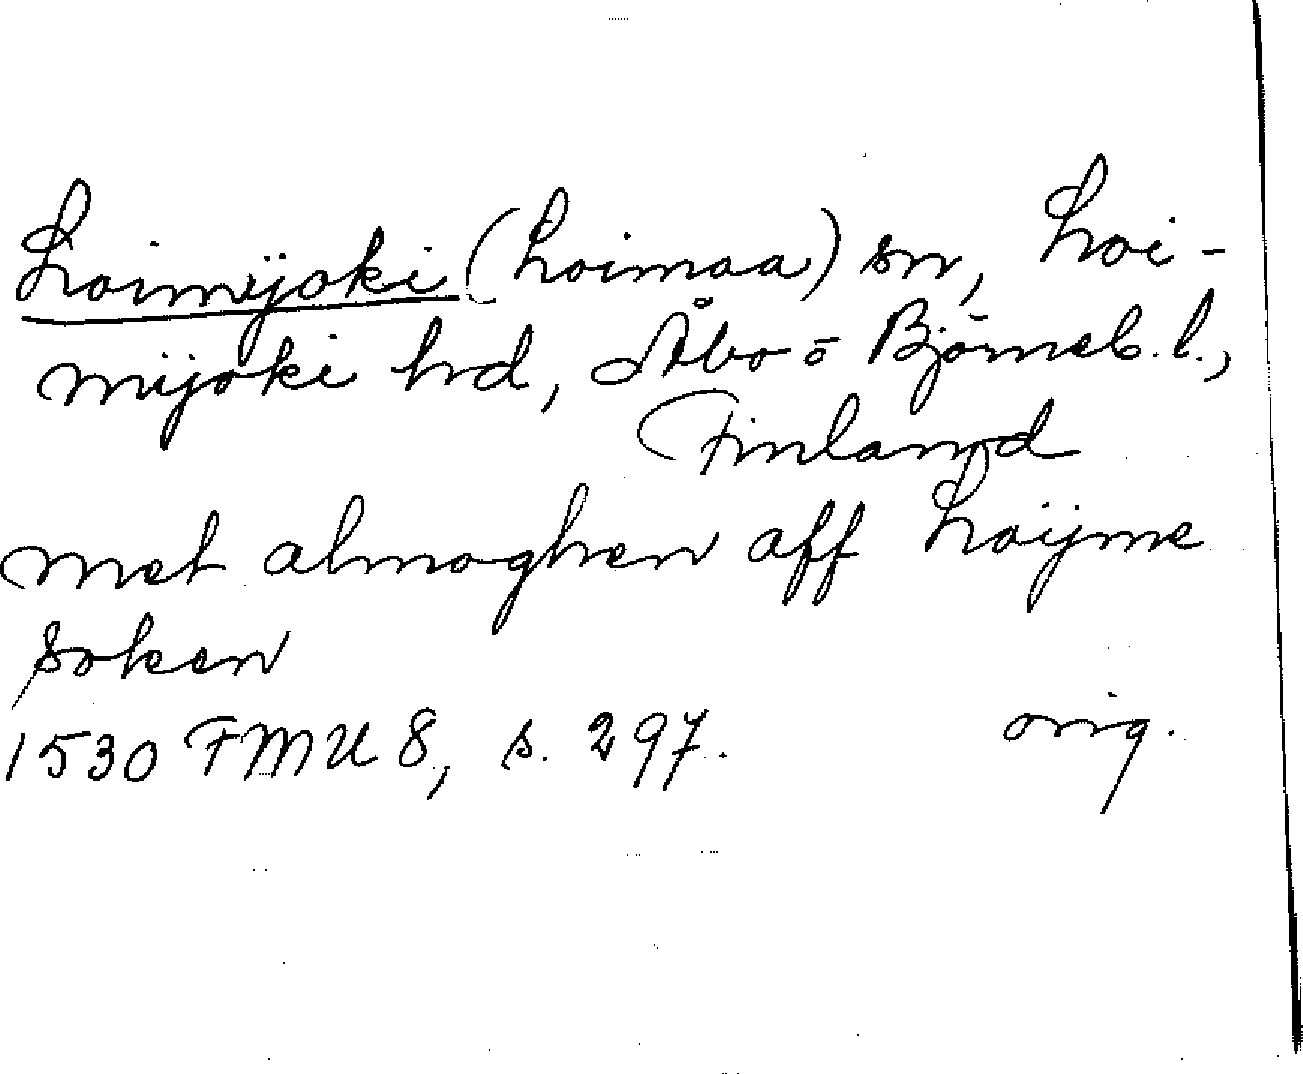 Loimijoki (Loimaa) sn, Loi-
mijoki hd, Åbo o Björneb. l.,
Finland
met almoghen aff Loijme
soken
1530 FMU 8, s. 297. orig.